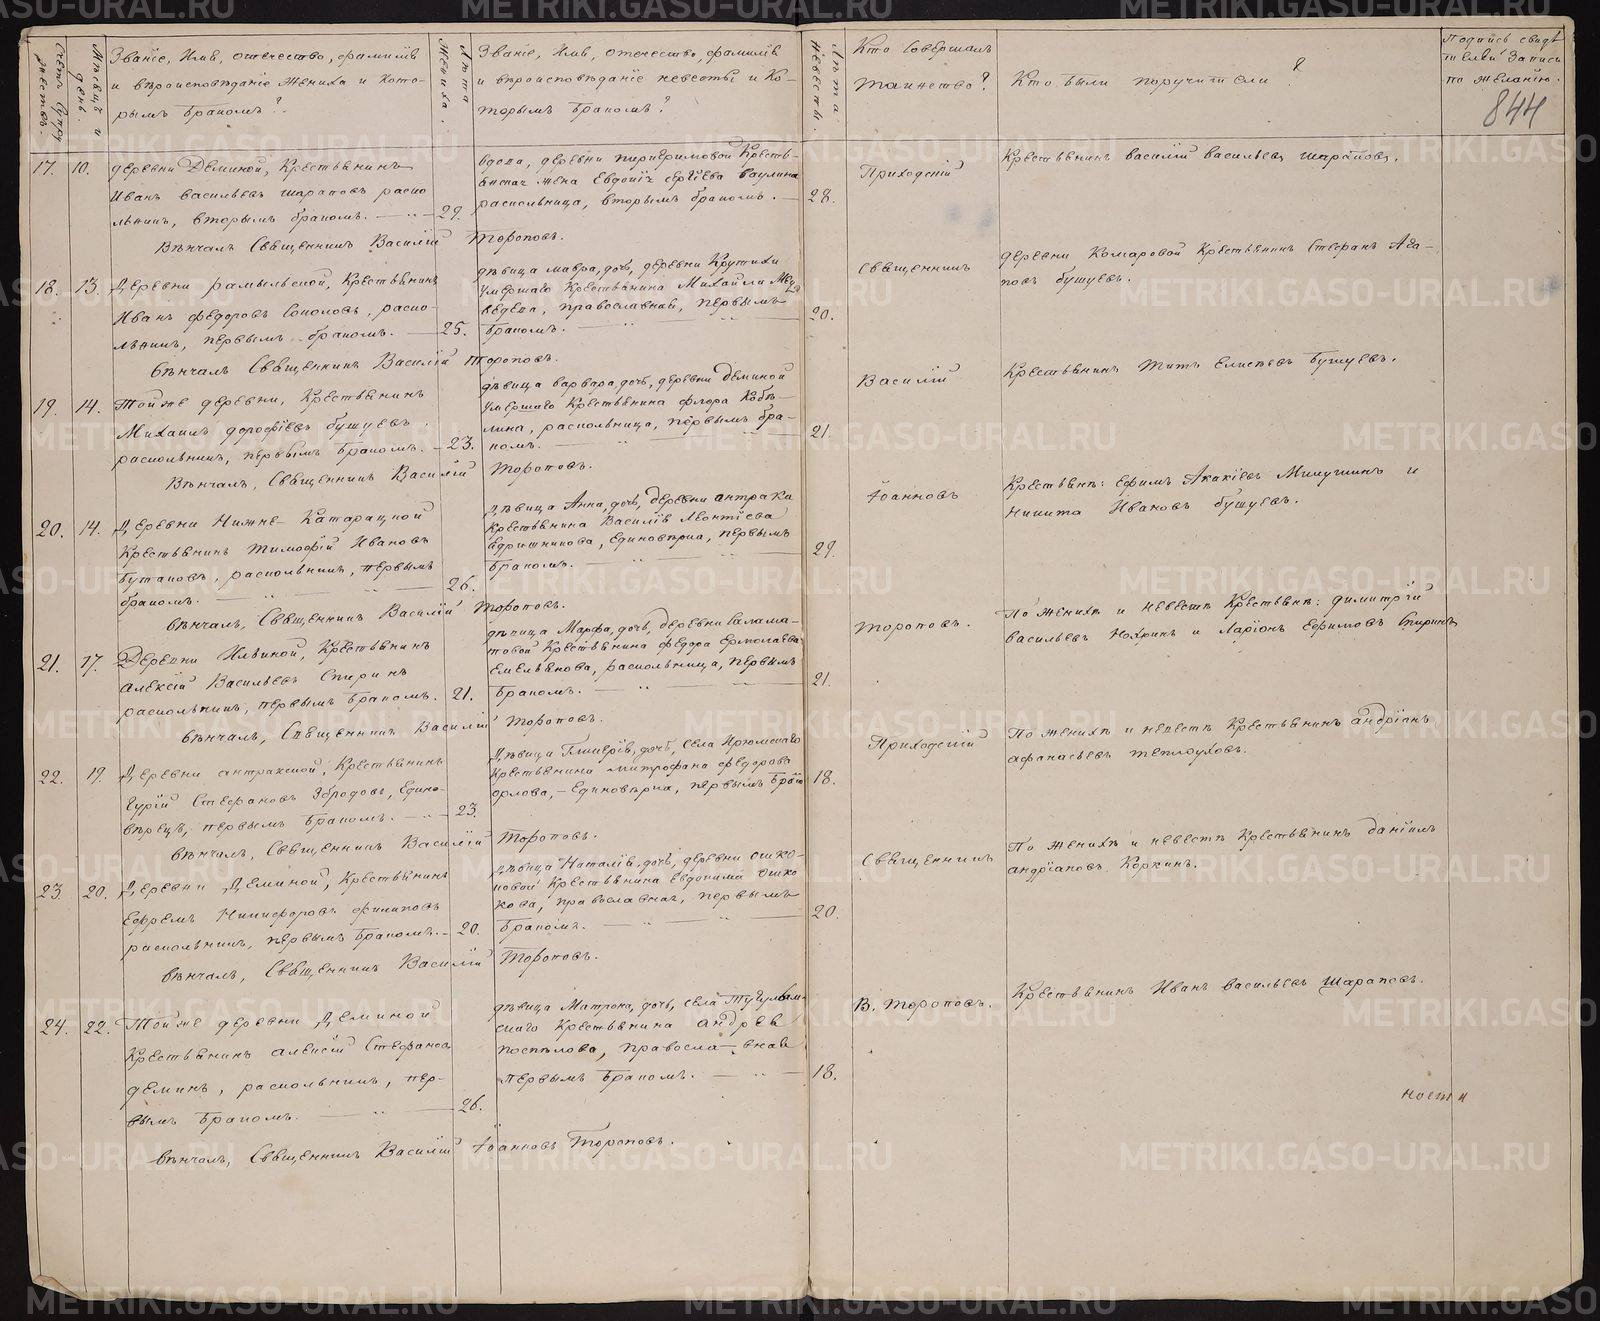 Счетъ Супружествъ.
Мѣсяцъ и день.
Званіе, Имя, отечество, фамилія
и вѣроисповѣданіе жениха и кото-
рымъ бракомъ?
Лѣта Жениха.
Званіе, Имя, отечество, фамилія
и вѣроисповѣданіе невесты и ко-
торымъ бракомъ?
Лѣта невесты.
Кто совершалъ
таинство?
Кто были поручители?
Подпись свидѣ
телей записи
по желанію.
844
17. 10. деревни Деминой, Крестьянинъ
Иванъ Васильевъ Шараповъ раско
льникъ, вторымъ бракомъ. 29.
вдова, деревни Крестья-
жена Евдокія Сергіева Ваулина
раскольница, вторымъ бракомъ. 28.
Вѣнчалъ Священникъ Василій Тороповъ.
Приходскій
Крестьянинъ Василій Васильевъ Шараповъ.
18. 13. Деревни Рамыльской, Крестьянинъ
Иванъ Федоровъ Соколовъ, раско-
льникъ, первымъ бракомъ. 25.
дѣвица Мавра, дочь, деревни Крутихи
умершаго Крестьянина Михаила Мед
ведева, православная, первымъ
бракомъ. 20.
вѣнчалъ Священникъ Василій Тороповъ.
Священникъ
деревни Комаровой Крестьянинъ Стефанъ Ага-
повъ Бушуевъ.
19. 14. Той же деревни, Крестьянинъ
Михаилъ Дорофѣевъ Бушуевъ,
раскольникъ, первымъ бракомъ. 23.
дѣвица Варвара, дочь, деревни Деминой
умершаго Крестьянина Флора Кобя-
лина, раскольница, первымъ бра-
комъ. 21.
Вѣнчалъ, Священникъ Василій Тороповъ.
Василій
Крестьянинъ Титъ Елисѣевъ Бушуевъ.
20. 14. Деревни Нижне-Катарацкой
Крестьянинъ Тимофей Ивановъ
Бутаковъ, раскольникъ, первымъ
бракомъ. 26.
дѣвица Анна, дочь, деревни Антрака
Крестьянина Василія Леонтіева
единовѣрка, первымъ
бракомъ. 29.
вѣнчалъ, Священникъ Василій Тороповъ.
Іоанновъ
Крестьяне: Ефимъ Акакіевъ и
Никита Ивановъ Бушуевъ.
21. 17. Деревни Ильиной, Крестьянинъ
Алексѣй Васильевъ Спиринъ
раскольникъ, первымъ бракомъ. 21.
дѣвица Марфа, дочь, деревни Салама-
товой Крестьянина Федора Ермолаева
Емельянова, раскольница, первымъ
бракомъ. 21.
вѣнчалъ, Священникъ Василій Тороповъ.
Тороповъ.
По женихѣ и невестѣ Крестьяне: Димитрій
Васильевъ Нохринъ и Ларіонъ Ефимовъ Спиринъ
22. 19. Деревни Антракской, Крестьянинъ
Гурій Стефановъ Збродовъ, Едино-
вѣрецъ, первымъ бракомъ. 23.
Дѣвица Гликерія, дочь, села Ирюмскаго
Крестьянина Митрофана Федорова
Орлова, – Единовѣрка, первымъ 18.
вѣнчалъ, Священникъ Василій Тороповъ.
Приходскій
По женихѣ и невестѣ Крестьянинъ Андріанъ
Афанасьевъ Теплоуховъ.
23. 20. Деревни Деминой, Крестьянинъ
Ефремъ Никифоровъ Филиповъ
раскольникъ, первымъ бракомъ. 20.
дѣвица Наталія, дочь, деревни Ошко-
ковой Крестьянина Евдокима Ошко
кова, православная, первымъ
бракомъ. 20.
вѣнчалъ, Священникъ Василій Тороповъ.
Священникъ
По женихѣ и невестѣ Крестьянинъ Даніилъ
Андріановъ Коркинъ.
24. 22. Той же деревни Деминой
Крестьянинъ Алексѣй Стефановъ
Деминъ, раскольникъ, пер-
вымъ бракомъ. 26.
дѣвица Матрона, дочь, села Тугулым-
скаго Крестьянина Андрея
Поспѣлова, православная
первымъ бракомъ. 18.
вѣнчалъ, Священникъ Василій Іоанновъ Тороповъ.
В. Тороповъ.
Крестьянинъ Иванъ Васильевъ Шараповъ.
ности
METRIKI.GASO-URAL.RU